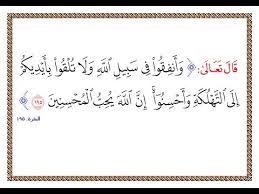 قَالَ تَعَالَىٰ: ﴿ وَأَنفِقُوا۟ فِى سَبِيلِ ٱللَّهِ وَلَا تُلْقُوا۟ بِأَيْدِيكُمْ
إِلَى ٱلتَّهْلُكَةِ وَأَحْسِنُوٓا۟ إِنَّ ٱللَّهَ يُحِبُّ ٱلْمُحْسِنِينَ ١٩٥ ﴾
البقرة: ١٩٥